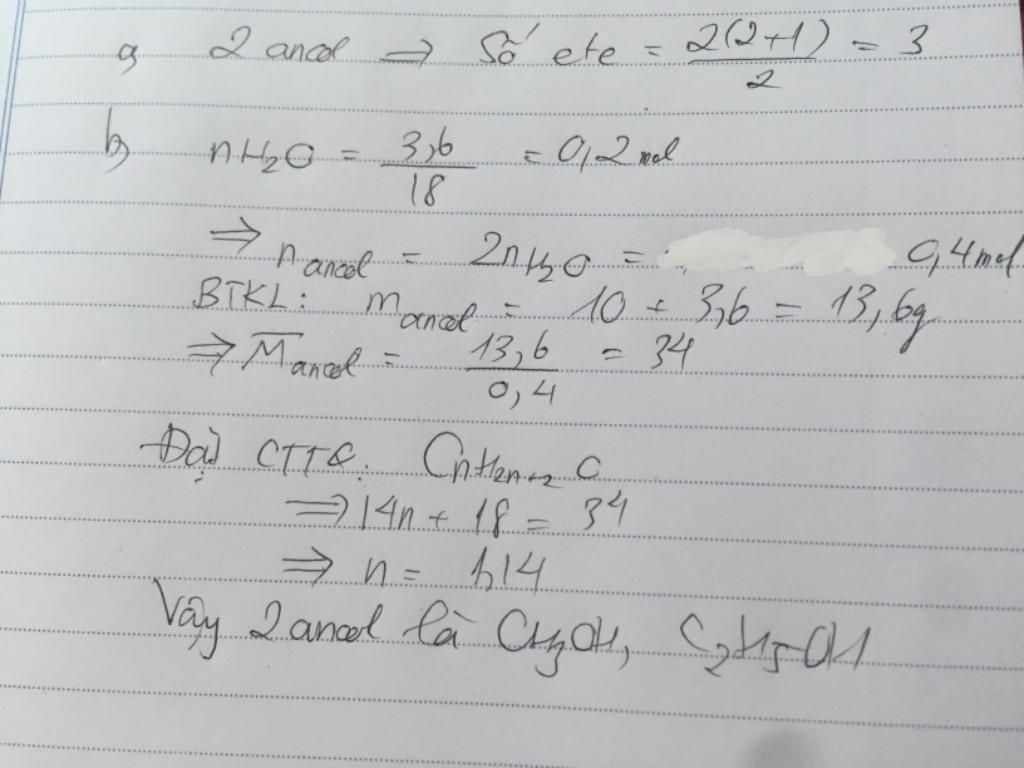 a) 2 ancol ⇒ Số ete = 2(2+1)/2 = 3
b) nH₂O = 3,6/18 = 0,2 mol
⇒ n ancol = 2nH₂O = 0,4 mol
BTKL: m ancol = 10 + 3,6 = 13,6g
⇒ M̅ ancol = 13,6/0,4 = 34
Đặt CTTQ: CnH2n+2O
⇒ 14n + 18 = 34
⇒ n = 1,14
Vậy 2 ancol là CH₃OH, C₂H₅OH